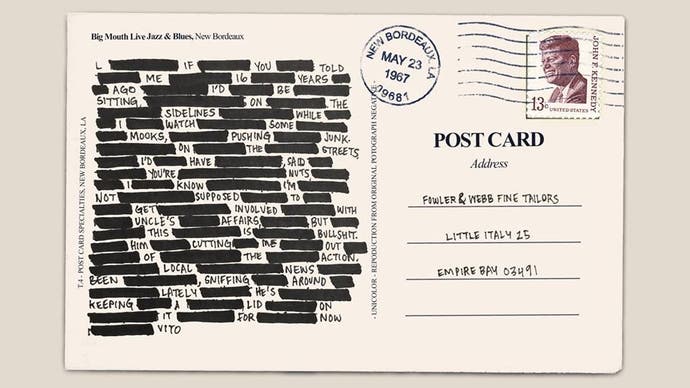 Big Mouth Live Jazz & Blues, New Bordeaux
L IF YOU TOLD
ME 16 YEARS
AGO I'D BE
SITTING ON THE
SIDELINES WHILE
I WATCH SOME
MOOKS, PUSHING JUNK
ON THE STREETS,
I'D HAVE SAID
YOU'RE NUTS
I KNOW I'M
NOT SUPPOSED TO
GET INVOLVED WITH
UNCLE'S AFFAIRS BUT
THIS IS BULLSHIT.
HIM CUTTING ME OUT
OF THE ACTION.
LOCAL NEWS
BEEN SNIFFING AROUND
LATELY HE'S
KEEPING A LID ON
IT FOR NOW
VITO
T.4 - POST CARD SPECIALTIES, NEW BORDEAUX, LA
- UNICOLOR - REPODUCTION FROM ORIGINAL POTOGRAPH NEGATIVE -
NEW BORDEAUX, LA
MAY 23
1967
09681
JOHN F. KENNEDY
13c UNITED STATES
POST CARD
Address
FOWLER & WEBB FINE TAILORS
LITTLE ITALY 25
EMPIRE BAY 03491